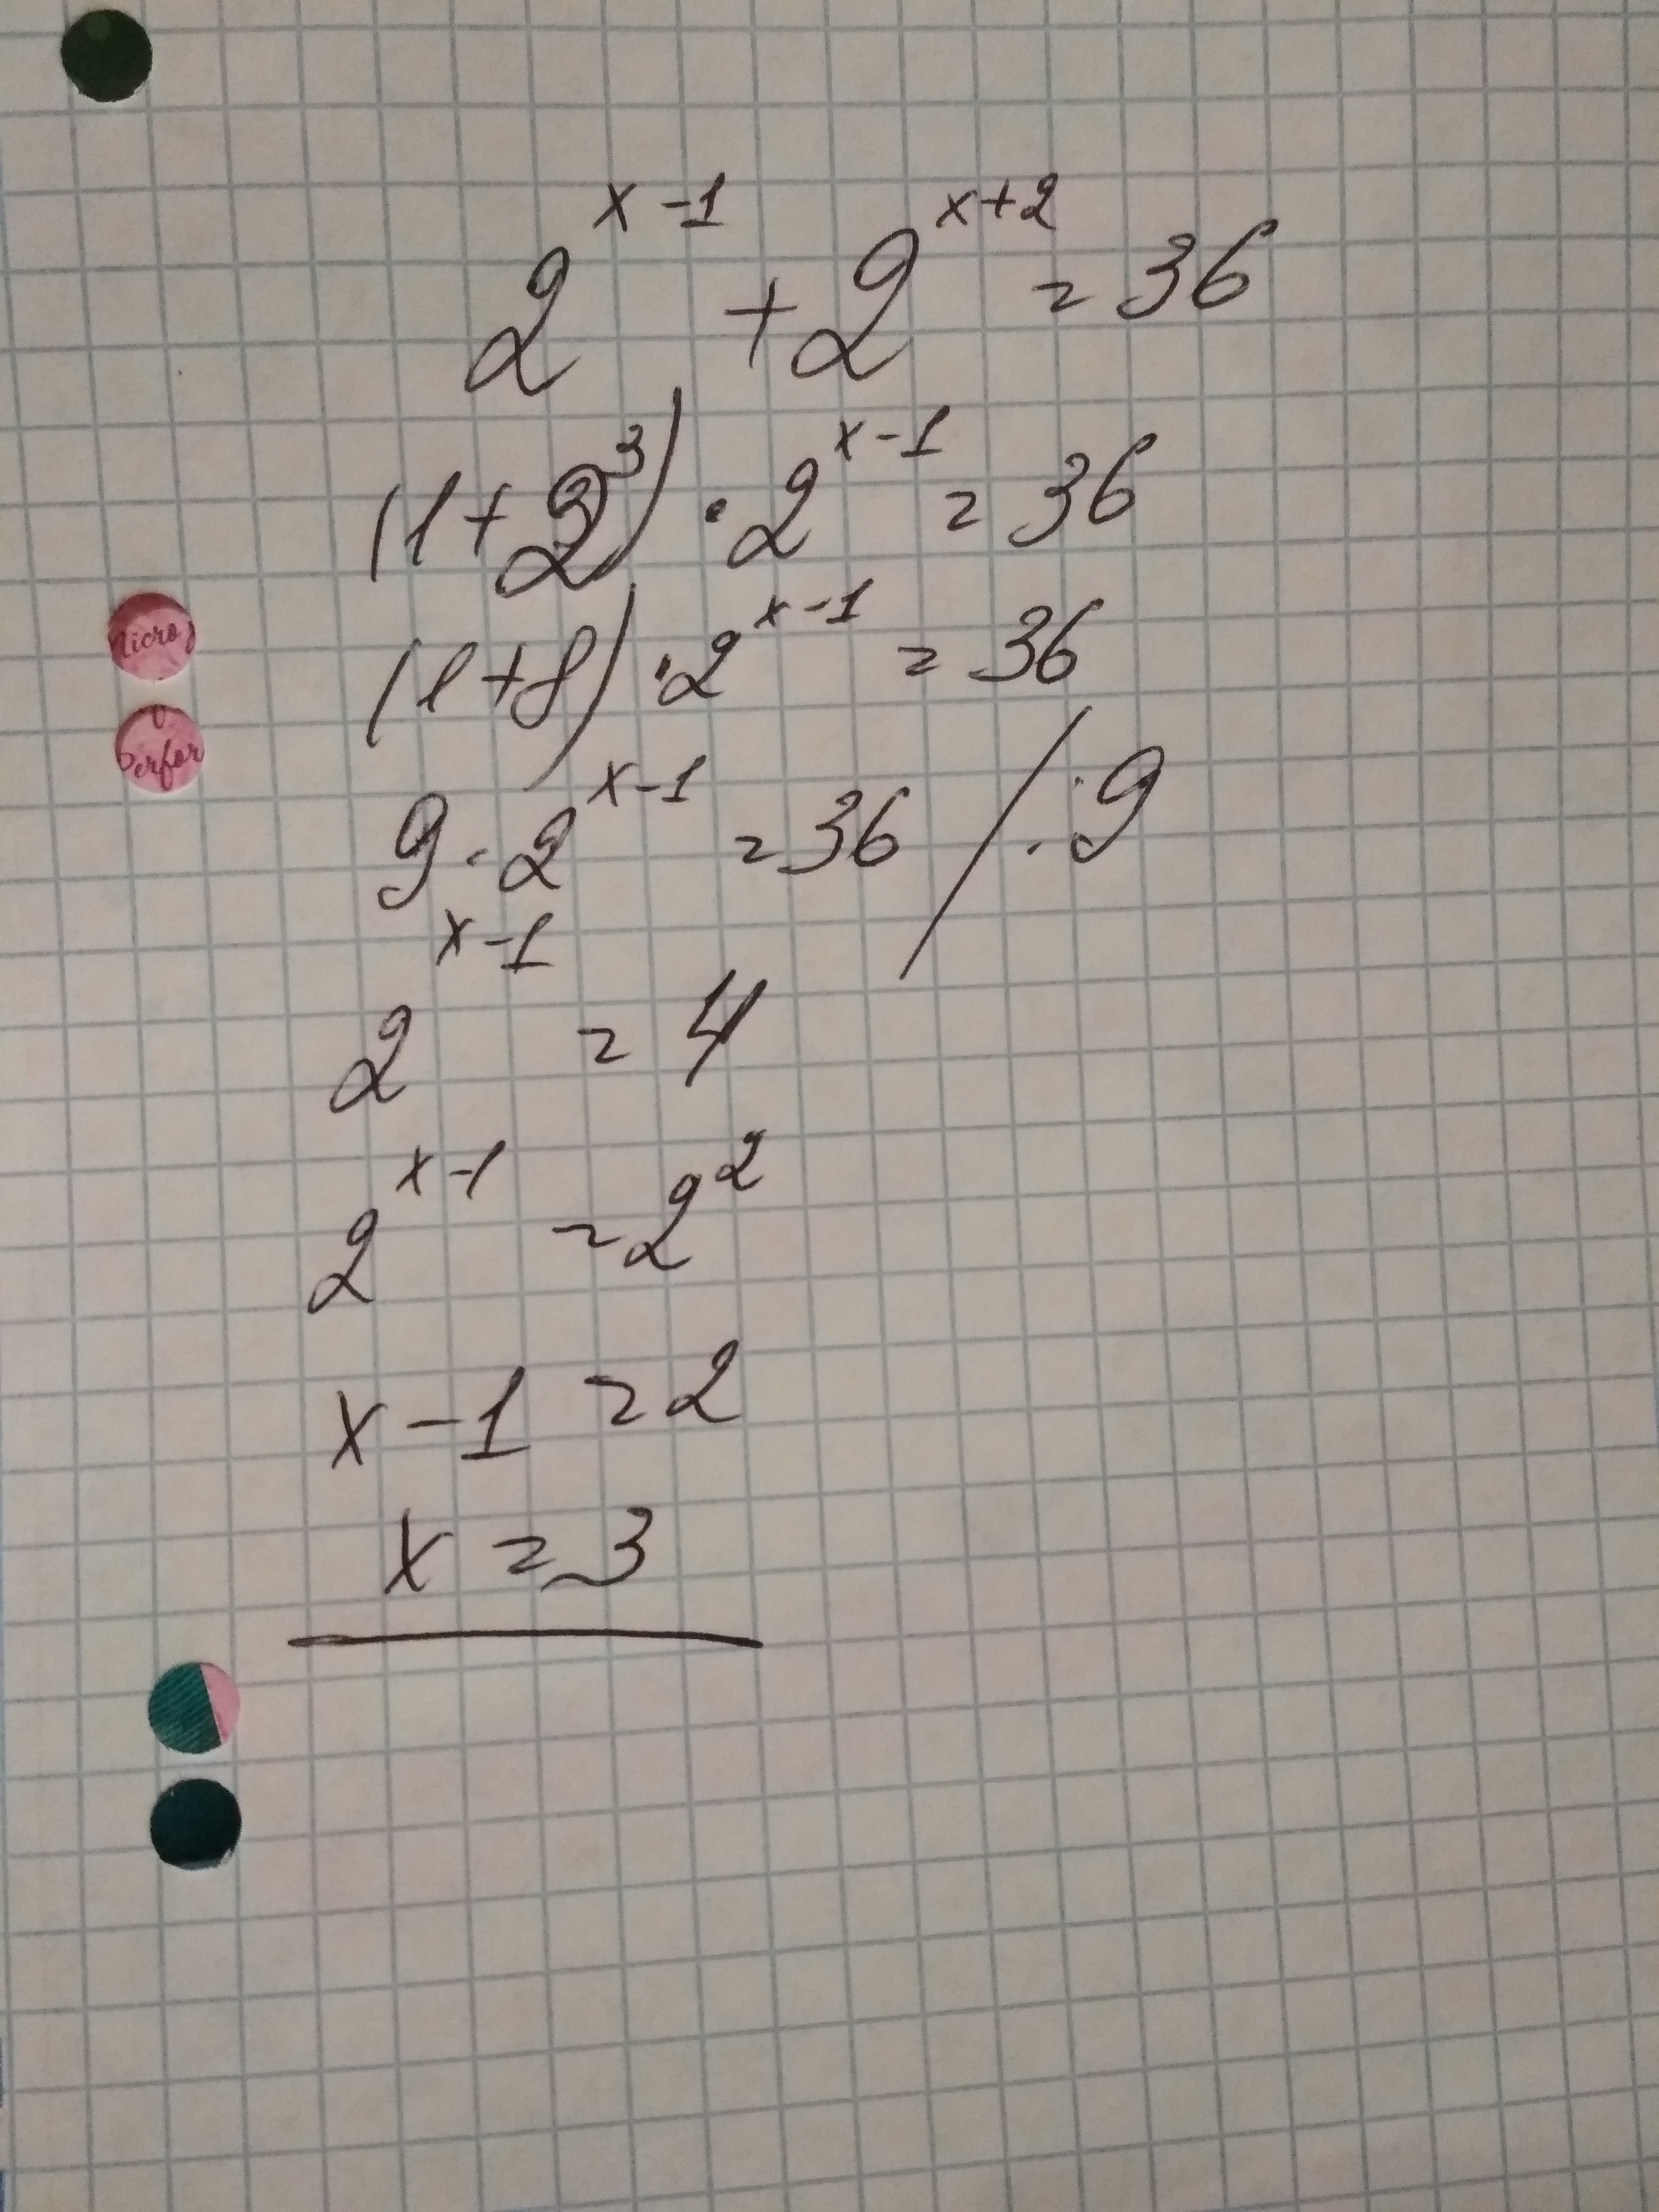 2^(x-1) + 2^(x+2) = 36
(1+2^3) · 2^(x-1) = 36
(1+8) · 2^(x-1) = 36
9 · 2^(x-1) = 36 / :9
2^(x-1) = 4
2^(x-1) = 2^2
x-1 = 2
x = 3
Micro
Perfor